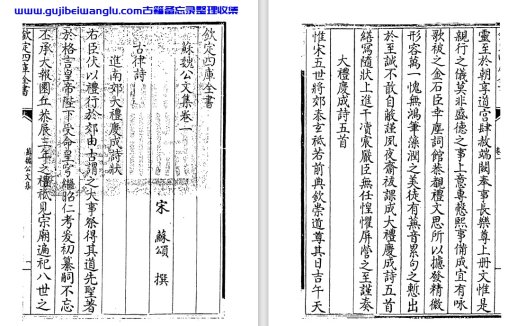 www.gujibeiwanglu.com古籍备忘录整理收集
欽定四庫全書
蘇魏公文集卷一
宋 蘇頌 撰
古律詩
進南郊大禮慶成詩狀
右臣伏以禮行於郊由古謂之大事祭得其道先聖著
於格言皇帝陛下受命皇穹繼昭仁考爰初纂嗣不忘
丕承大報圜丘恭展三年之禮祗見宗廟遹祀八世之
欽定四庫全書
蘇魏公文集
靈至於朝享道宮肆赦端闕奉事長樂尊上冊文惟是
親行之儀莫非盛德之事上意專慤熙事備成宜有咏
歌被之金石臣幸塵詞館恭覩禮文思所以攄發精微
形容萬一愧無鴻筆藻潤之美徒有蕪音累句之慙出
於至誠不敢自蔽謹夙夜齋祓課成大禮慶成詩五首
繕寫隨狀上進干瀆宸嚴臣無任惶懼屏營之至謹奏
大禮慶成詩五首
惟宋五世將郊泰玄祗若前典欽崇道尊其日吉午天